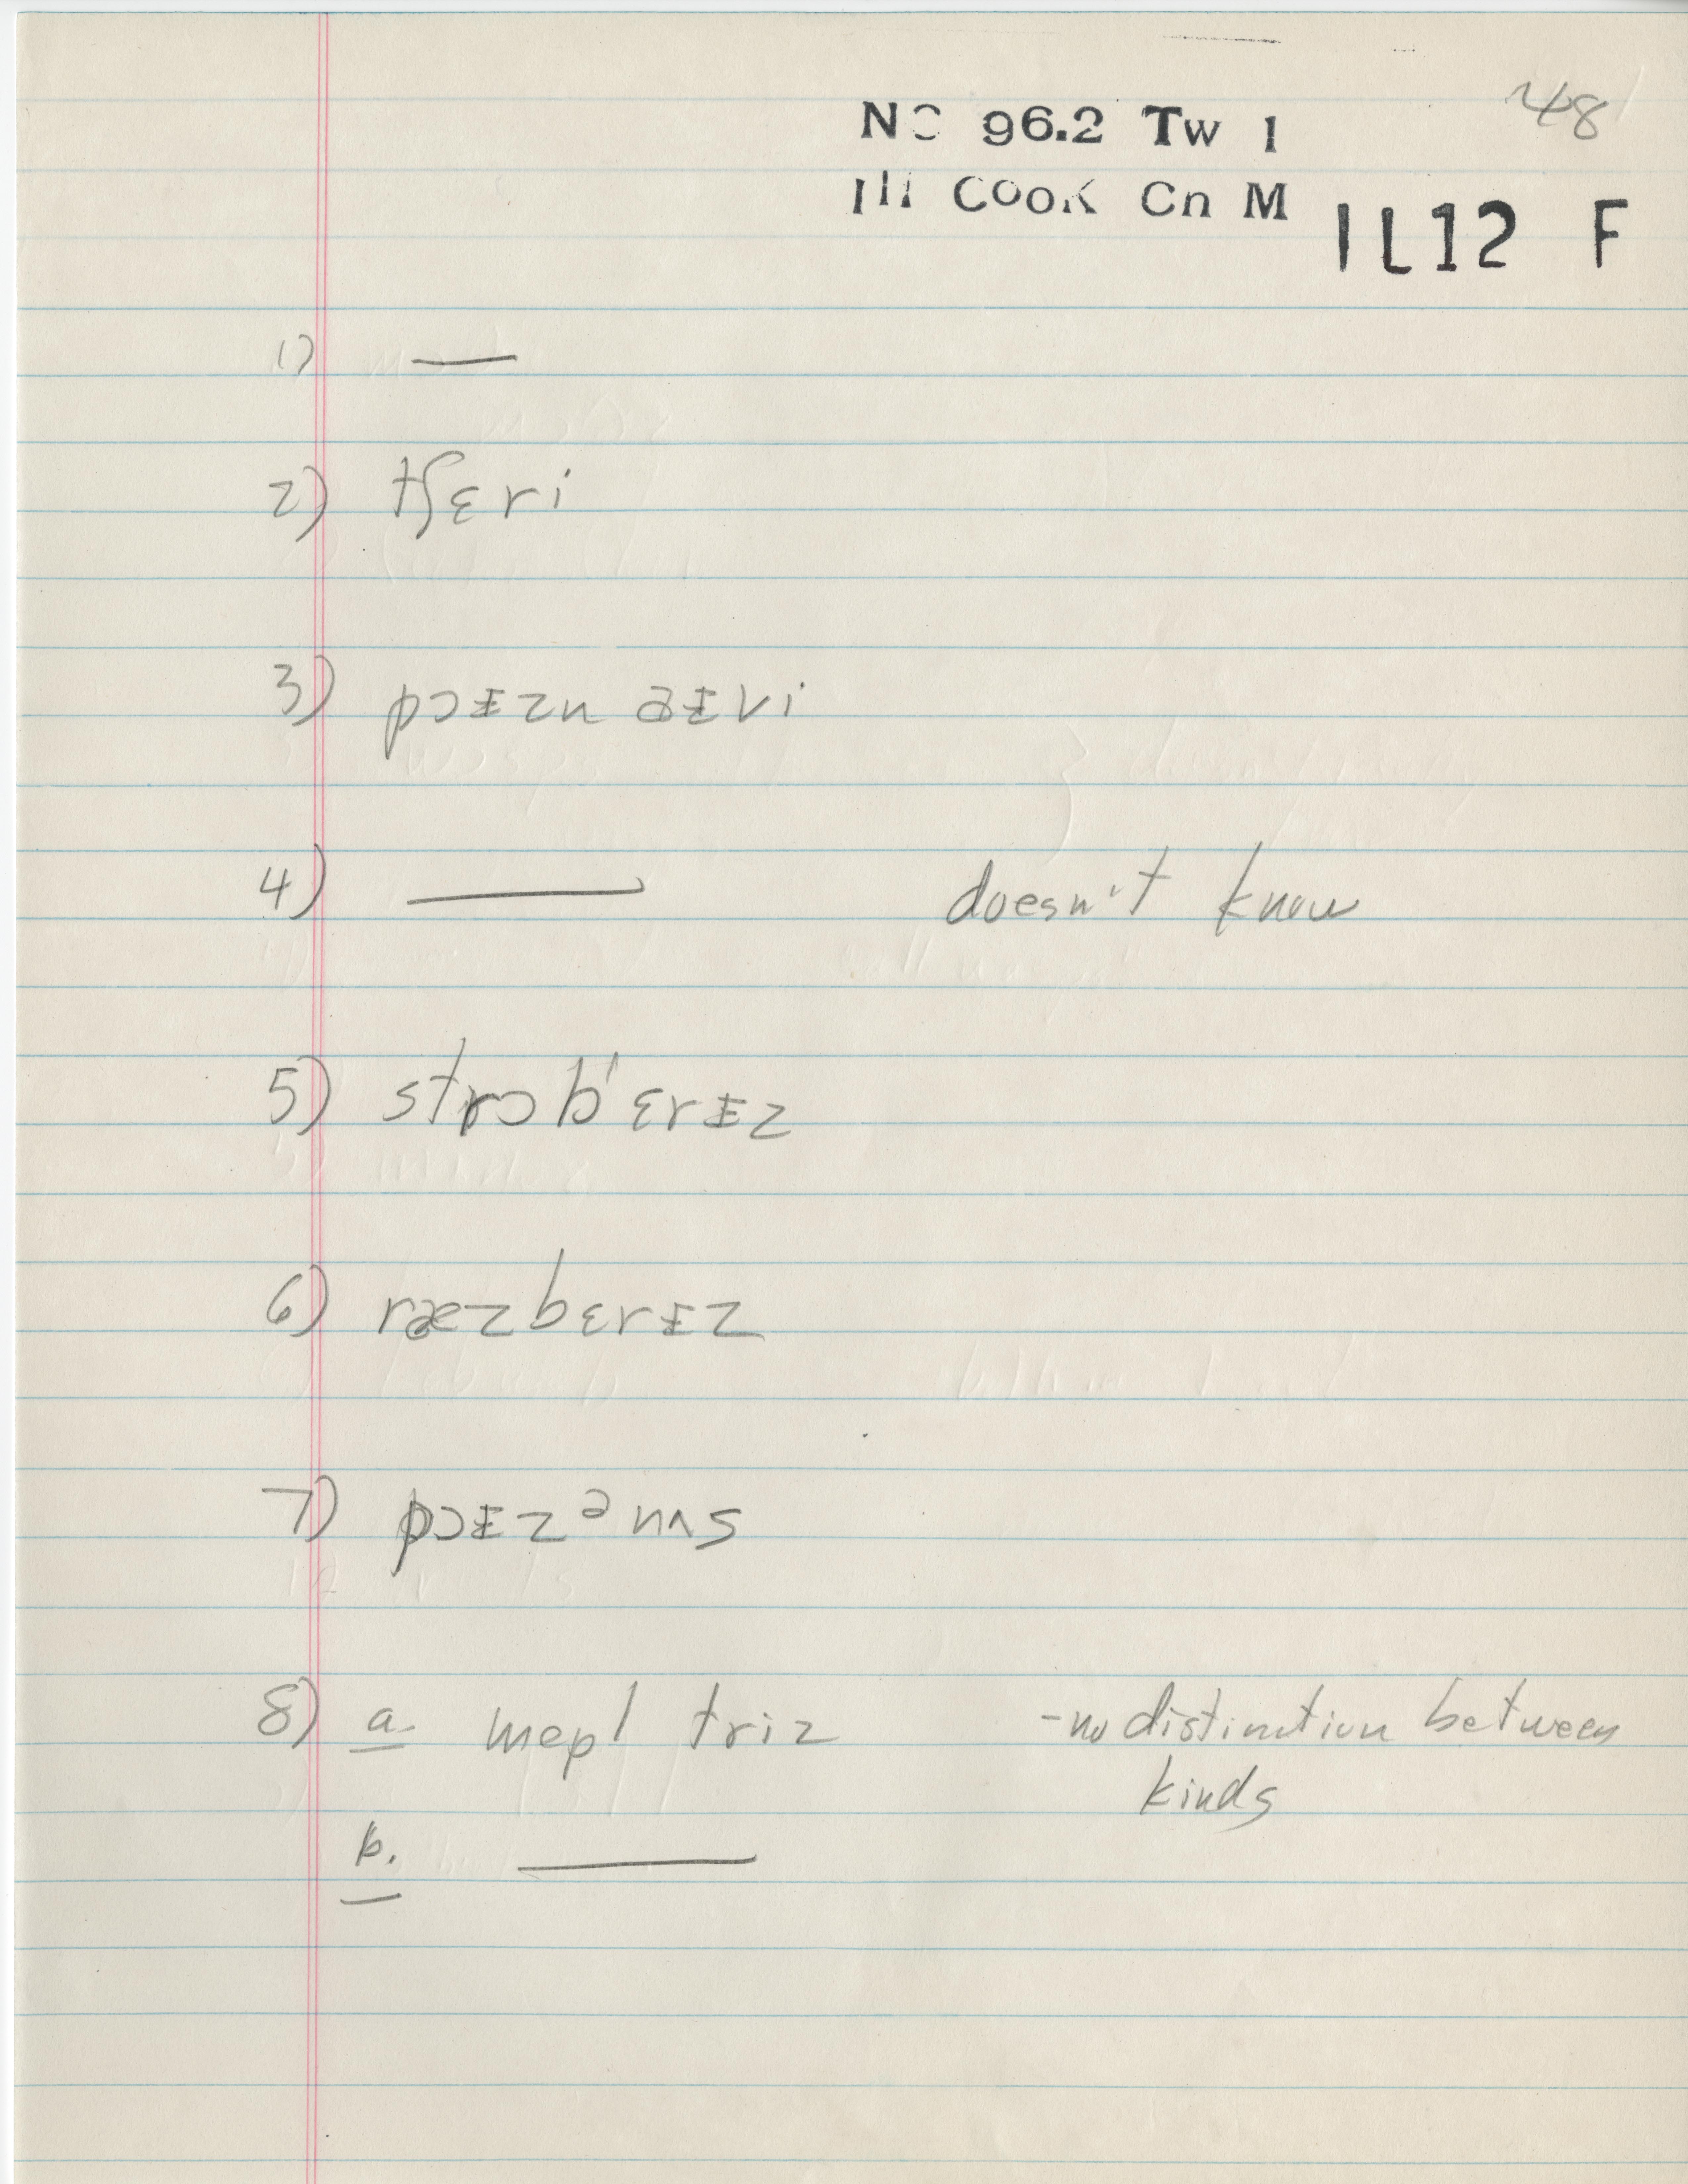 48
NC 96.2 Tw 1
Ill Cook Cn M
IL12 F
1) —
2) tʃɛri
3) pɔᵻzn aᵻvi
4) — doesn't know
5) strɔb'ɛrᵻz
6) ræzbɛrᵻz
7) pɔᵻzənʌs
8) a. mepl triz -no distinction between
kinds
b. —